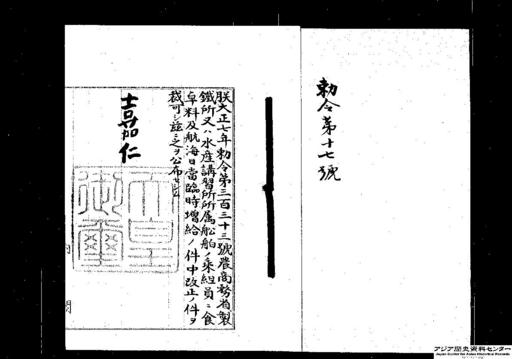 勅令第十七號
朕大正七年勅令第三百三十三號農商務省製
鐵所又ハ水産講習所所属船舶ノ乘組員ニ食
卓料及航海日當臨時増給ノ件中改正ノ件ヲ
裁可シ茲ニ之ヲ公布セシム
嘉仁
天皇
御璽
内
閣
アジア歴史資料センター
Japan Center for Asian Historical Records